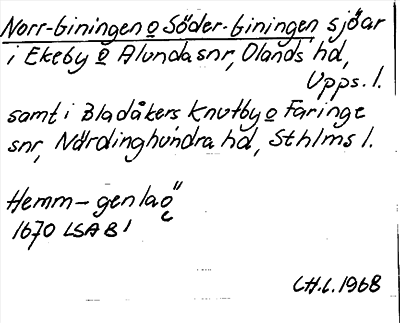 Norr-Giningen o Söder-Giningen sjöar
i Ekeby o Alunda snr, Olands hd,
Upps. l.
samt i Bladåkers Knutby o Faringe
snr, Närdinghundra hd, Sthlms l.
Hemm-genlagͦ̈
1670 LSA B 1
CH.L. 1968